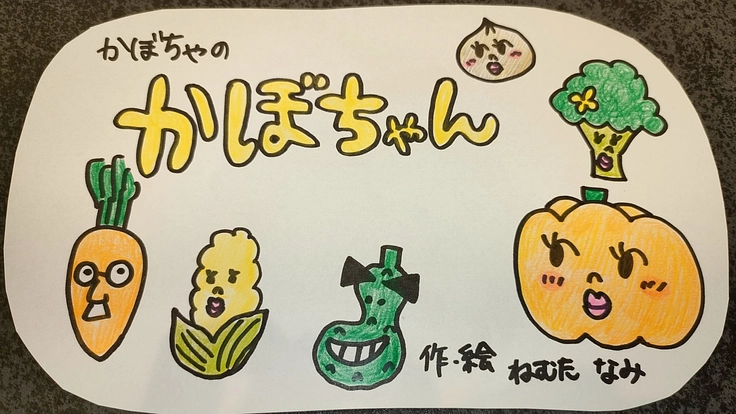 かぼちゃの
かぼちゃん
作・絵 ねむた なみ